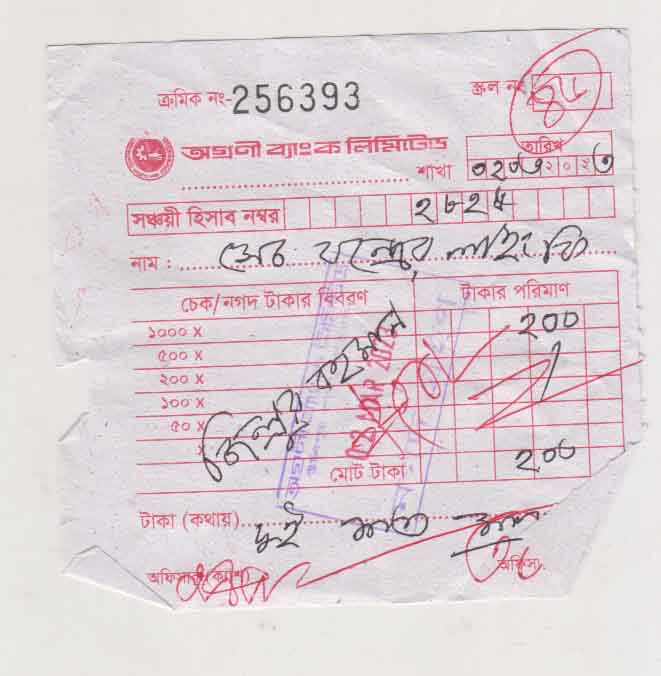 ক্রমিক নং-256393 স্ক্রল নং
অগ্রণী ব্যাংক লিমিটেড তারিখ
শাখা ০২০৩২০২৩
সঞ্চয়ী হিসাব নম্বর ২৮২৪
নাম :
চেক/নগদ টাকার বিবরণ টাকার পরিমাণ
১০০০ X ২০০
৫০০ X
২০০ X
১০০ X
৫০ X
X
জিল্লুর রহমান
মোট টাকা ২০০
টাকা (কথায়) দুই শত মাত্র
অফিসার (ক্যাশ)